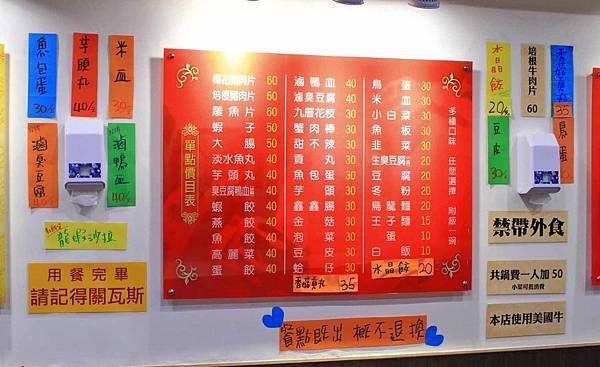 魚包蛋
30/-
芋頭丸
40/-
米血
30/-
滷臭豆腐
40/-
滷鴨血
40/-
龍蝦沙拉
用餐完畢
請記得關瓦斯
單點價目表
梅花豬肉片 60
培根豬肉片 60
雕魚片 60
蝦子 50
大腸 50
淡水魚丸 40
芋頭丸 40
臭豆腐鴨血 40
蝦餃 40
燕餃 40
魚餃 40
高麗菜 40
蛋餃 40
滷鴨血 40
滷臭豆腐 40
九層花枝 30
蟹肉棒 30
甜不辣 30
貢丸 30
魚包蛋 30
芋頭 30
鑫鑫腸 30
金菇 30
泡菜 30
豆皮 30
蛤仔 30
香菇貢丸 35
鳥蛋 30
米血 30
小白菜 30
魚板 30
韭菜 30
生臭豆腐 20
豆腐 20
冬粉 20
烏龍麵 20
王子麵 15
蛋 10
白飯 10
水晶餃 20
多種口味 任您選擇 附飯一碗
餐點既出 概不退換
水晶餃
20/-
培根牛肉片
60
35
豆皮
30/-
鳥蛋
30/-
禁帶外食
共鍋費一人加50
小菜可抵消費
本店使用美國牛